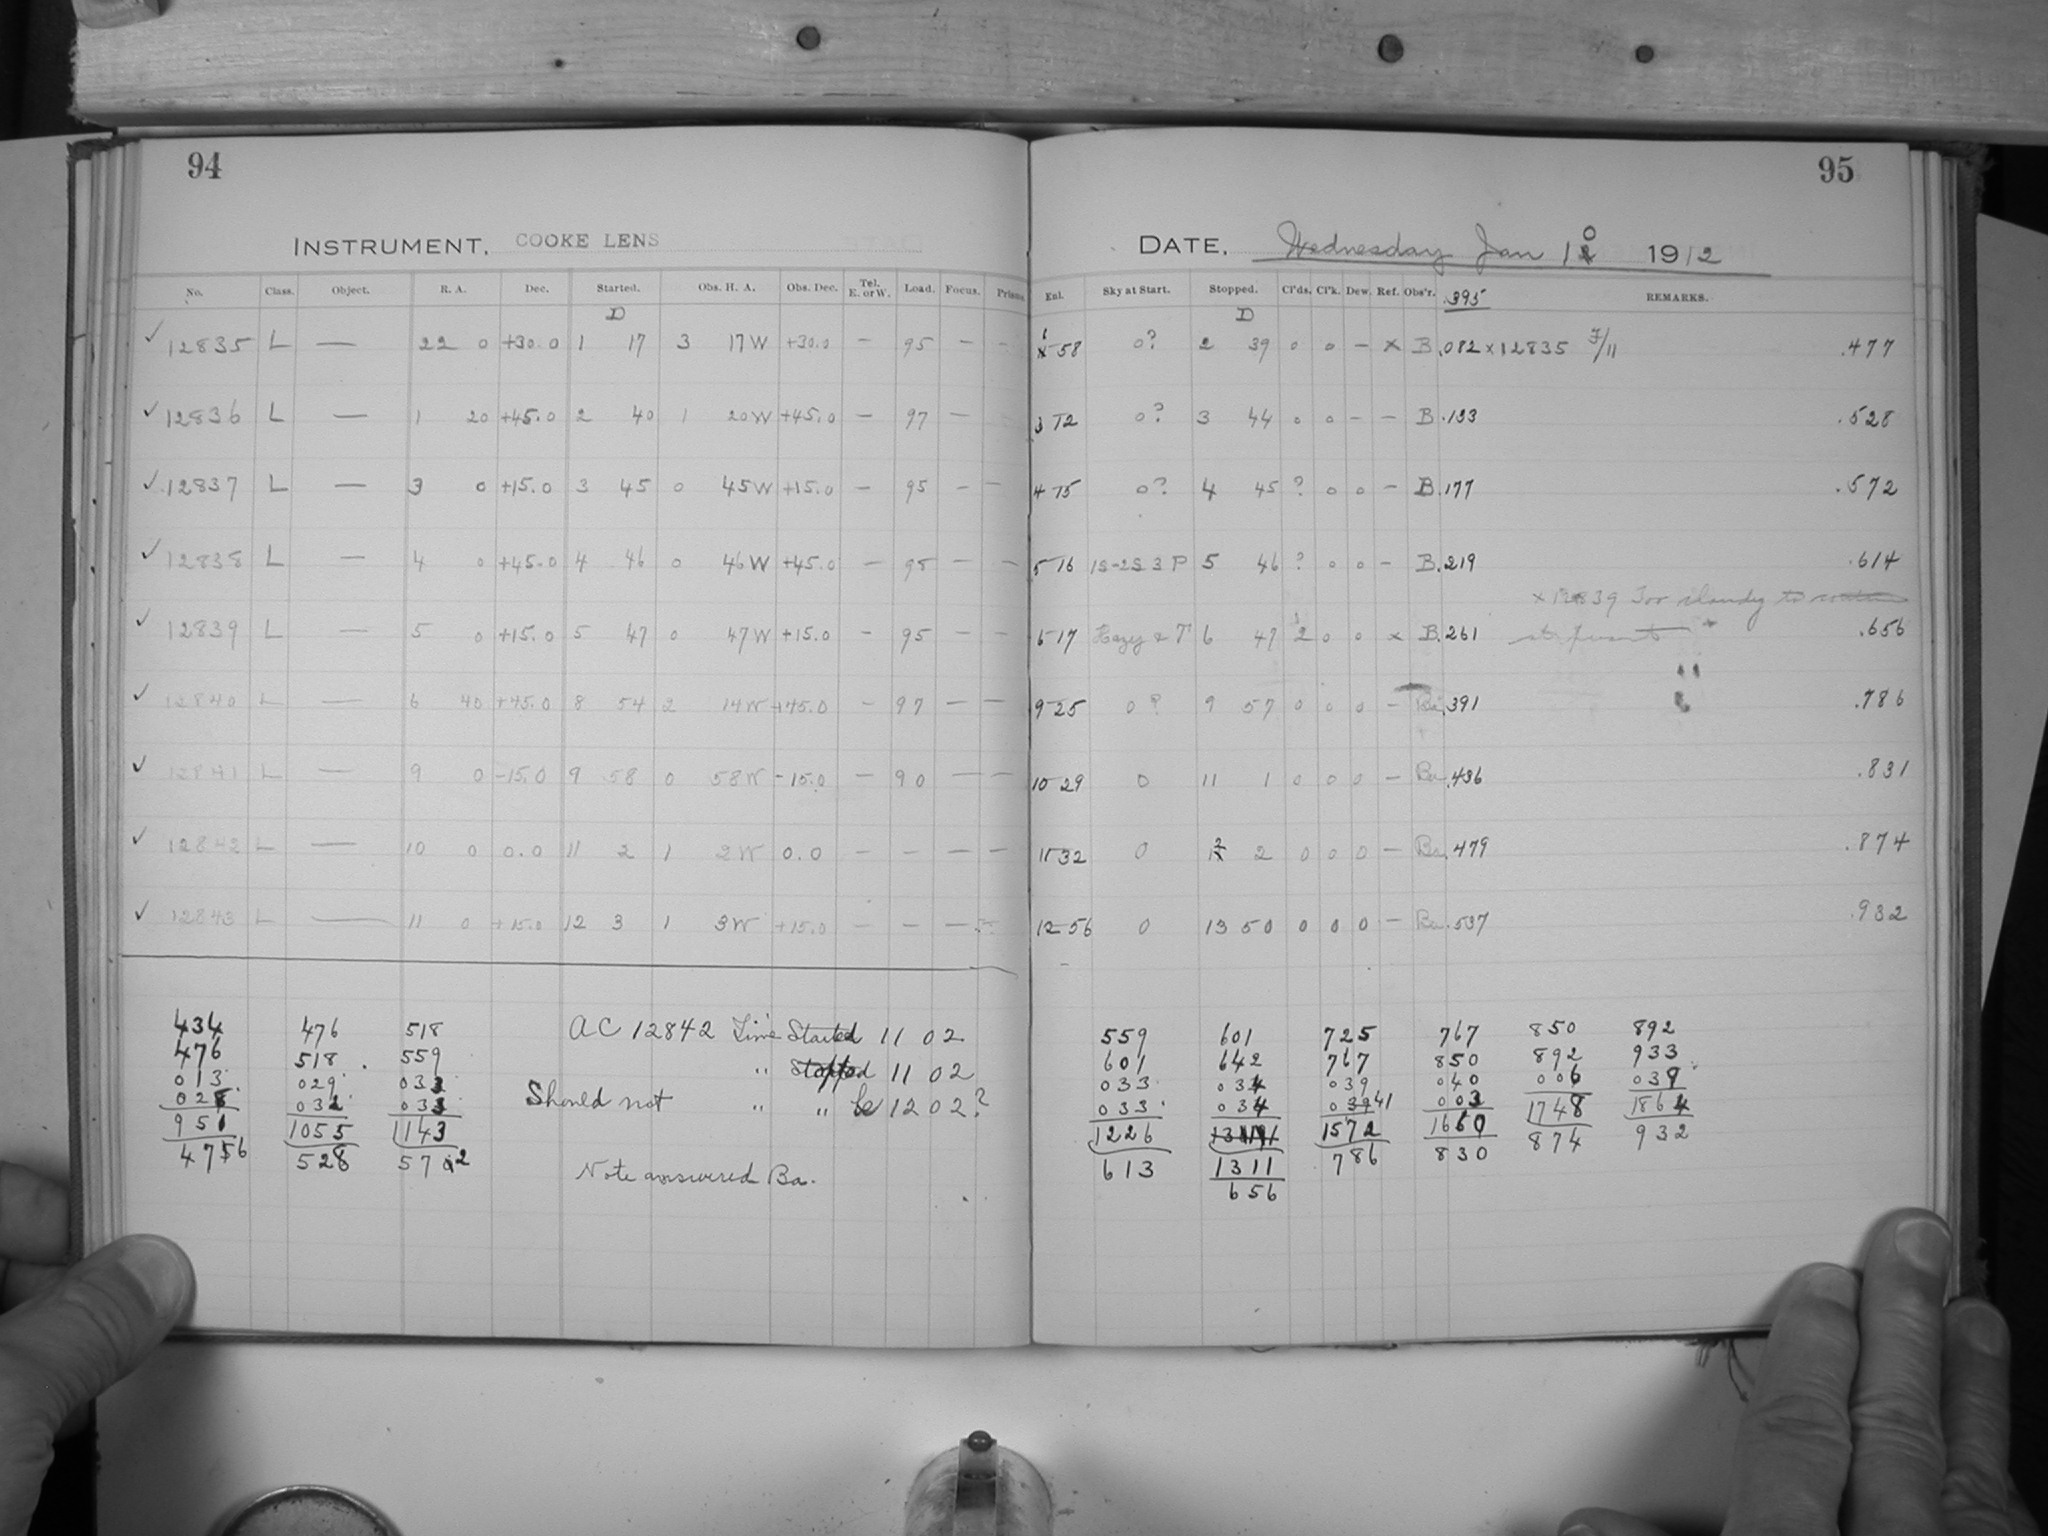 94
INSTRUMENT, COOKE LENS
No. Class. Object. R. A. Dec. Started. Obs. H. A. Obs. Dec. Tel. E. or W. Load. Focus. Prisms.
D
✓ 12835 L — 22 0 +30.0 1 17 3 17 W +30.0 — 95 — —
✓ 12836 L — 1 20 +45.0 2 40 1 20 W +45.0 — 97 —
✓ 12837 L — 3 0 +15.0 3 45 0 45 W +15.0 — 95 — —
✓ 12838 L — 4 0 +45.0 4 46 0 46 W +45.0 — 95 — —
✓ 12839 L — 5 0 +15.0 5 47 0 47 W +15.0 — 95 — —
✓ 12840 L — 6 40 +45.0 8 54 2 14 W +45.0 — 97 — —
✓ 12841 L — 9 0 -15.0 9 58 0 58 W -15.0 — 90 — —
✓ 12842 L — 10 0 0.0 11 2 1 2 W 0.0 — — — —
✓ 12843 L — 11 0 +15.0 12 3 1 3 W +15.0 — — —
434 476 518
476 518 559
013 029 033
028 032 033
951 1055 1143
4756 528 572
AC 12842 Time Started 11 02
" Stopped 11 02
Should not " " be 12 02?
Note answered Ba.
95
DATE, Wednesday Jan 10 1912
Enl. Sky at Start. Stopped. Cl'ds. Cl'k. Dew. Ref. Obs'r. .395 REMARKS.
D
1 58 0? 2 39 0 0 — x B .082 x 12835 F/11 .477
3 12 0? 3 44 0 0 — — B .133 .528
4 15 0? 4 45 ? 0 0 — B .177 .572
5 16 1S-2S 3 P 5 46 ? 0 0 — B .219 .614
x 12839 Too cloudy to
6 17 Hazy & T 6 47 2 0 0 x B .261 .656
9 25 0? 9 57 0 0 0 — Ba .391 .786
10 29 0 11 1 0 0 0 — Ba .436 .831
11 32 0 12 2 0 0 0 — Ba .479 .874
12 56 0 13 50 0 0 0 — Ba .537 .932
559 601 725 767 850 892
601 642 767 850 892 933
033 034 039 040 006 039
033 034 039 41 003 1748 1864
1226 1572 1660 874 932
613 1311 786 830
656